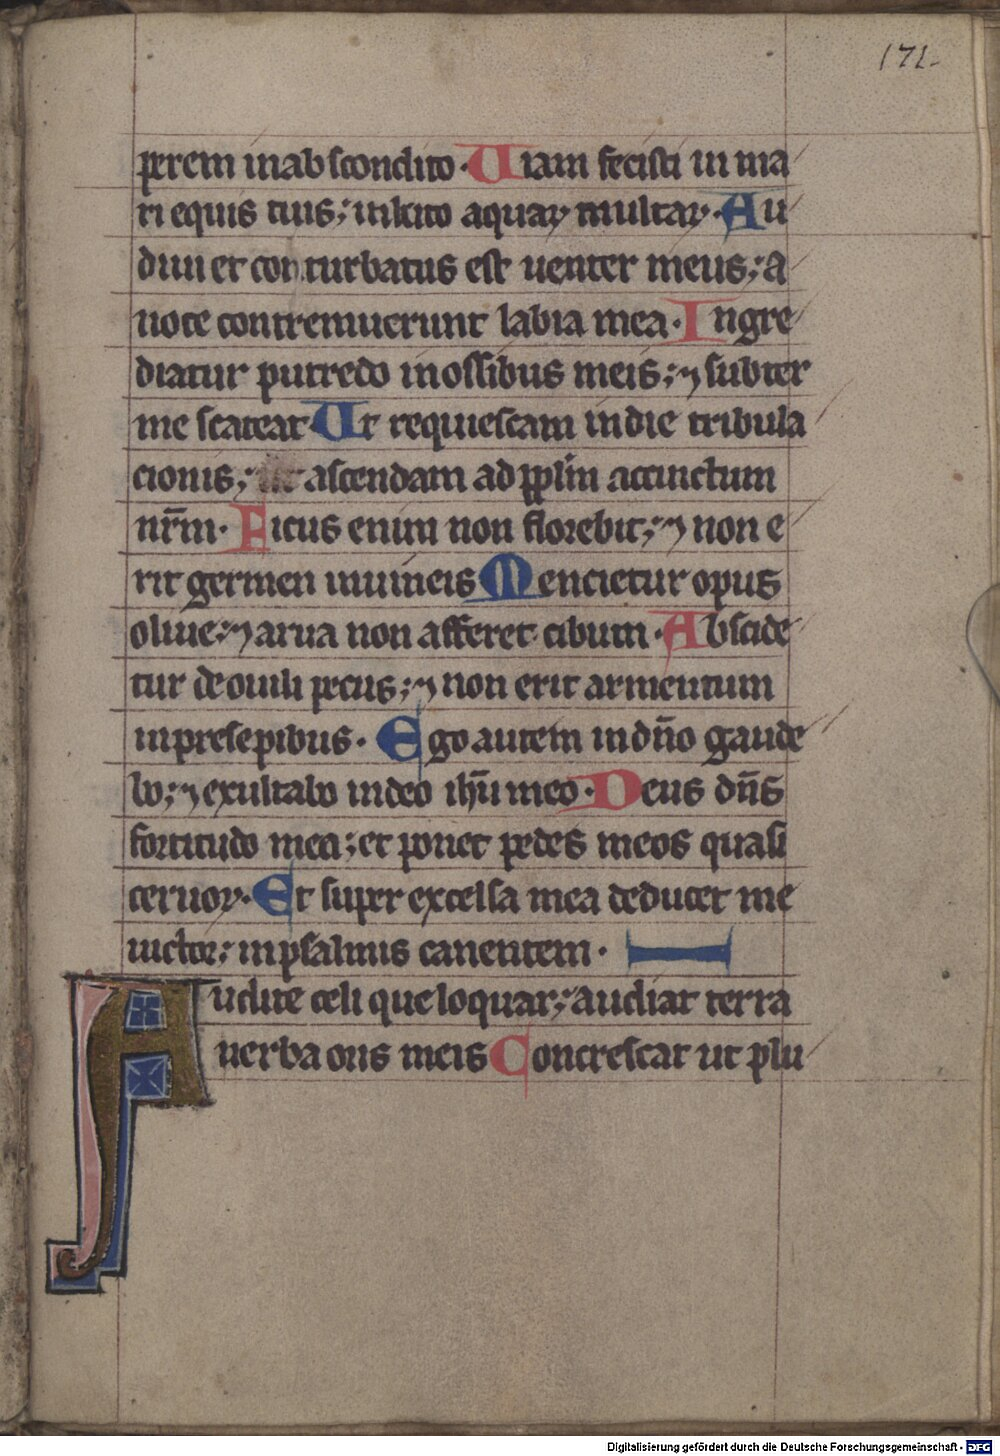 171.
perem in abscondito. Uiam fecisti in ma
ri equis tuis; in luto aquaꝝ multaꝝ. Au
diui et conturbatus est uenter meus; a
uoce contremuerunt labia mea. Ingre
diatur putredo in ossibus meis; ⁊ subter
me scateat Ut requiescam in die tribula
cionis; ut ascendam ad pplm̄ accinctum
nr̄m. Ficus enim non florebit; ⁊ non e
rit germen in uineis Mencietur opus
oliue; ⁊ arua non afferet cibum. Abscide
tur de ouili pecus; ⁊ non erit armentum
in presepibus. Ego autem in dn̄o gaude
bo; ⁊ exultabo in deo ih̄u meo. Deus dn̄s
fortitudo mea; et ponet pedes meos quasi
ceruoꝝ. Et super excelsa mea deducet me
uictor; in psalmis canentem.
Audite celi que loquar; audiat terra
uerba oris meis Concrescat ut plu
Digitalisierung gefördert durch die Deutsche Forschungsgemeinschaft - DFG